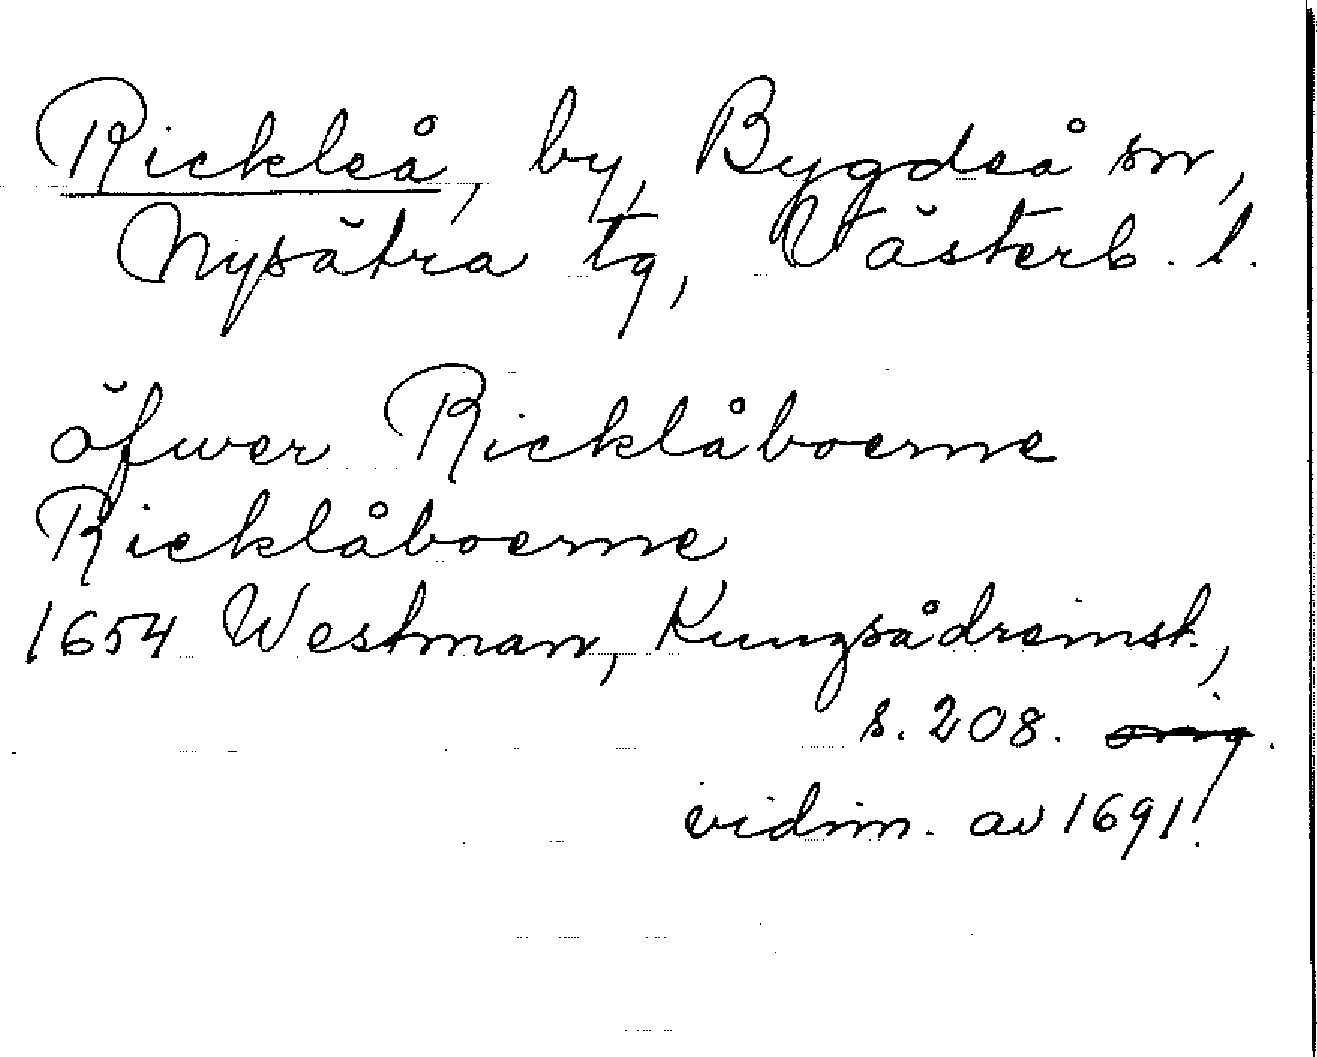 Rickleå, by, Bygdeå sn,
Nysätra tg, Västerb. l.
öfwer Ricklåboerne
Ricklåboerne
1654 Westman, Kungsådreinst.,
s. 208.
vidim. av 1691.